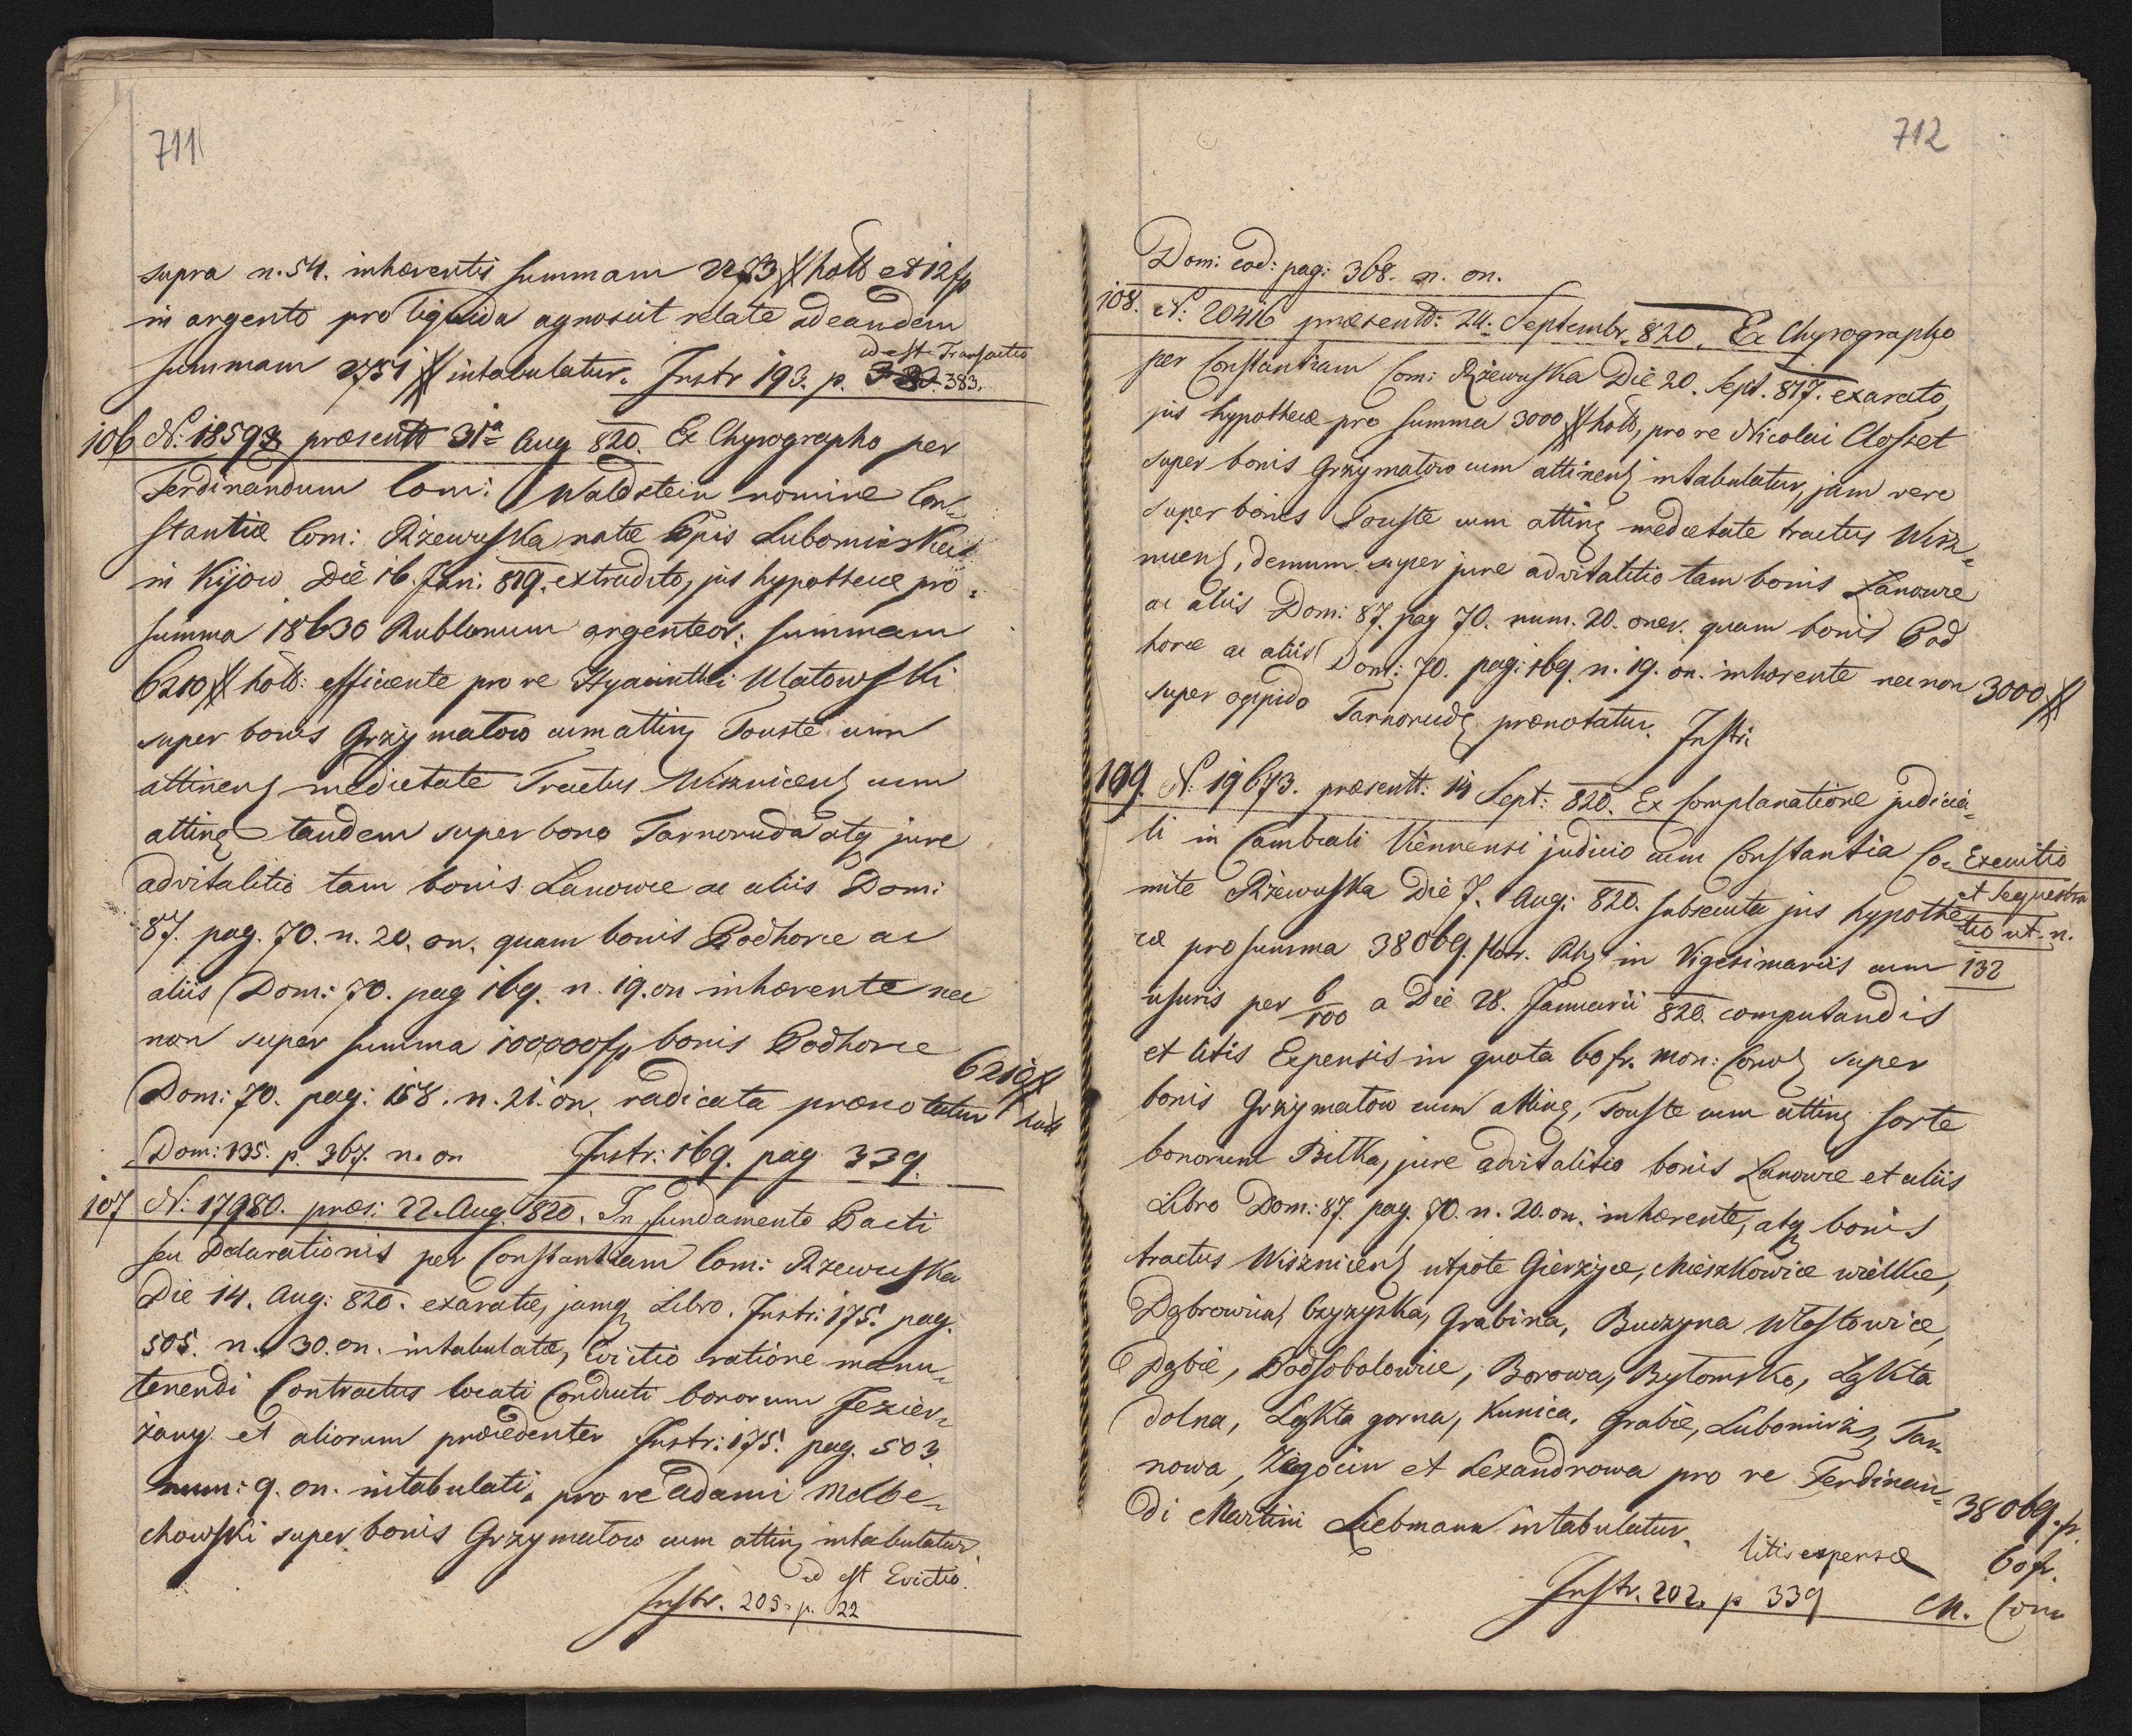 711
supra n. 54. inhærentis summam 2273 # holl et 12 fp
in argento pro liquida agnoscit relate ad eandem
summam 2751 # intabulatur. Instr 193. p. 383.
id est Transactio
106 N: 18593 præsentt 31a Aug 820. Ex Chyrographo per
Ferdinandum Com: Waldstein nomine Con-
stantiæ Com: Rzewuska natæ Lubomirska
in Kijow Die 16. Jan: 819. extradito, jus hypothecæ pro
summa 18630 Rublonum argenteor: summam
6210 # holl: efficiente pro re Hyacinthi Ulatowski
super bonis Grzymałow cum atting Touste cum
attinens medietate Tractus Wiszniczens cum
atting tandem super bono Tarnoruda atq jure
advitalitio tam bonis Lanowce ac aliis Dom:
87. pag. 70. n. 20. on. quam bonis Podhorce ac
aliis Dom: 70. pag 169. n. 19. on inhærente nec
non super summa 100000 fp bonis Podhorce
Dom: 70. pag: 158. n. 21. on. radicata prænotatur
6210 #
holl
Dom: 135. p. 367. n. on Instr: 169. pag 339.
107 N: 17980. præs: 22. Aug. 820. In fundamento Pacti
seu Declarationis per Constantiam Com: Rzewuska
Die 14. Aug: 820. exaratæ, jamq Libro. Instr: 175. pag.
505. n. 30. on. intabulatæ, Evictio ratione manu-
tenendi Contractus locati Conducti bonorum Jezier-
zany et aliorum præcedenter Instr: 175. pag. 503
num: 9. on. intabulati, pro re Adami Melbe-
chowski super bonis Grzymatow cum atting intabulatur.
id est Evictio.
Instr. 205. p. 22
712
Dom: eod: pag: 368. n. on.
108. N: 20416 præsentt: 24. Septembr. 820. Ex Chyrographo
per Constantiam Com: Rzewuska Die 20. Sept. 817. exarato,
jus hypothecæ pro summa 3000 # holl, pro re Nicolai Closset
super bonis Grzymatow cum attinens intabulatur, jam vero
super bonis Touste cum atting medietate tractus Wisz-
nicens, demum super jure advitalitio tam bonis Lanowce
ac aliis Dom: 87. pag 70. num. 20. oner. quam bonis Pod
horce ac aliis Dom: 70. pag: 169. n. 19. on. inhærente nec non
3000 #
super oppido Tarnorudg prænotatur. Instr:
109. N: 19673. præsentt: 14 Sept: 820. Ex Complanatione judicia-
li in Cambiali Viennensi judicio cum Constantia Co-
mite Rzewuska Die 7. Aug: 820. subsecuta jus hypothe
Executio
et Sequestra
tio ut. n.
132
cæ pro summa 38069. flor. Rhs in Vigesimariis cum
usuris per 6/100 a Die 28. Januarii 820. computandis
et litis Expensis in quota 60 fr. mon: Conv super
bonis Grzymatow cum atting, Touste cum atting sorte
bonorum Bilka, jure advitalitio bonis Lanowce et aliis
Libro Dom: 87. pag. 70. n. 20. on. inhærente, atq bonis
tractus Wisznicens utpote Gierzyce, Mieszkowice wielkie,
Dąbrowica, Czyzyska, Grabina, Buczyna Włostowice,
Dąbie, Podsobolowice, Borowa, Bytomsko, Łąkta
dolna, Łąkta gorna, Kunica, Grabie, Lubomirz, Tar-
nowa, Zegocin et Lexandrowa pro re Ferdinan-
di Martini Liebmann intabulatur.
38069. fr
litis expensæ 60 fr.
Instr. 202. p 339 M. Conv